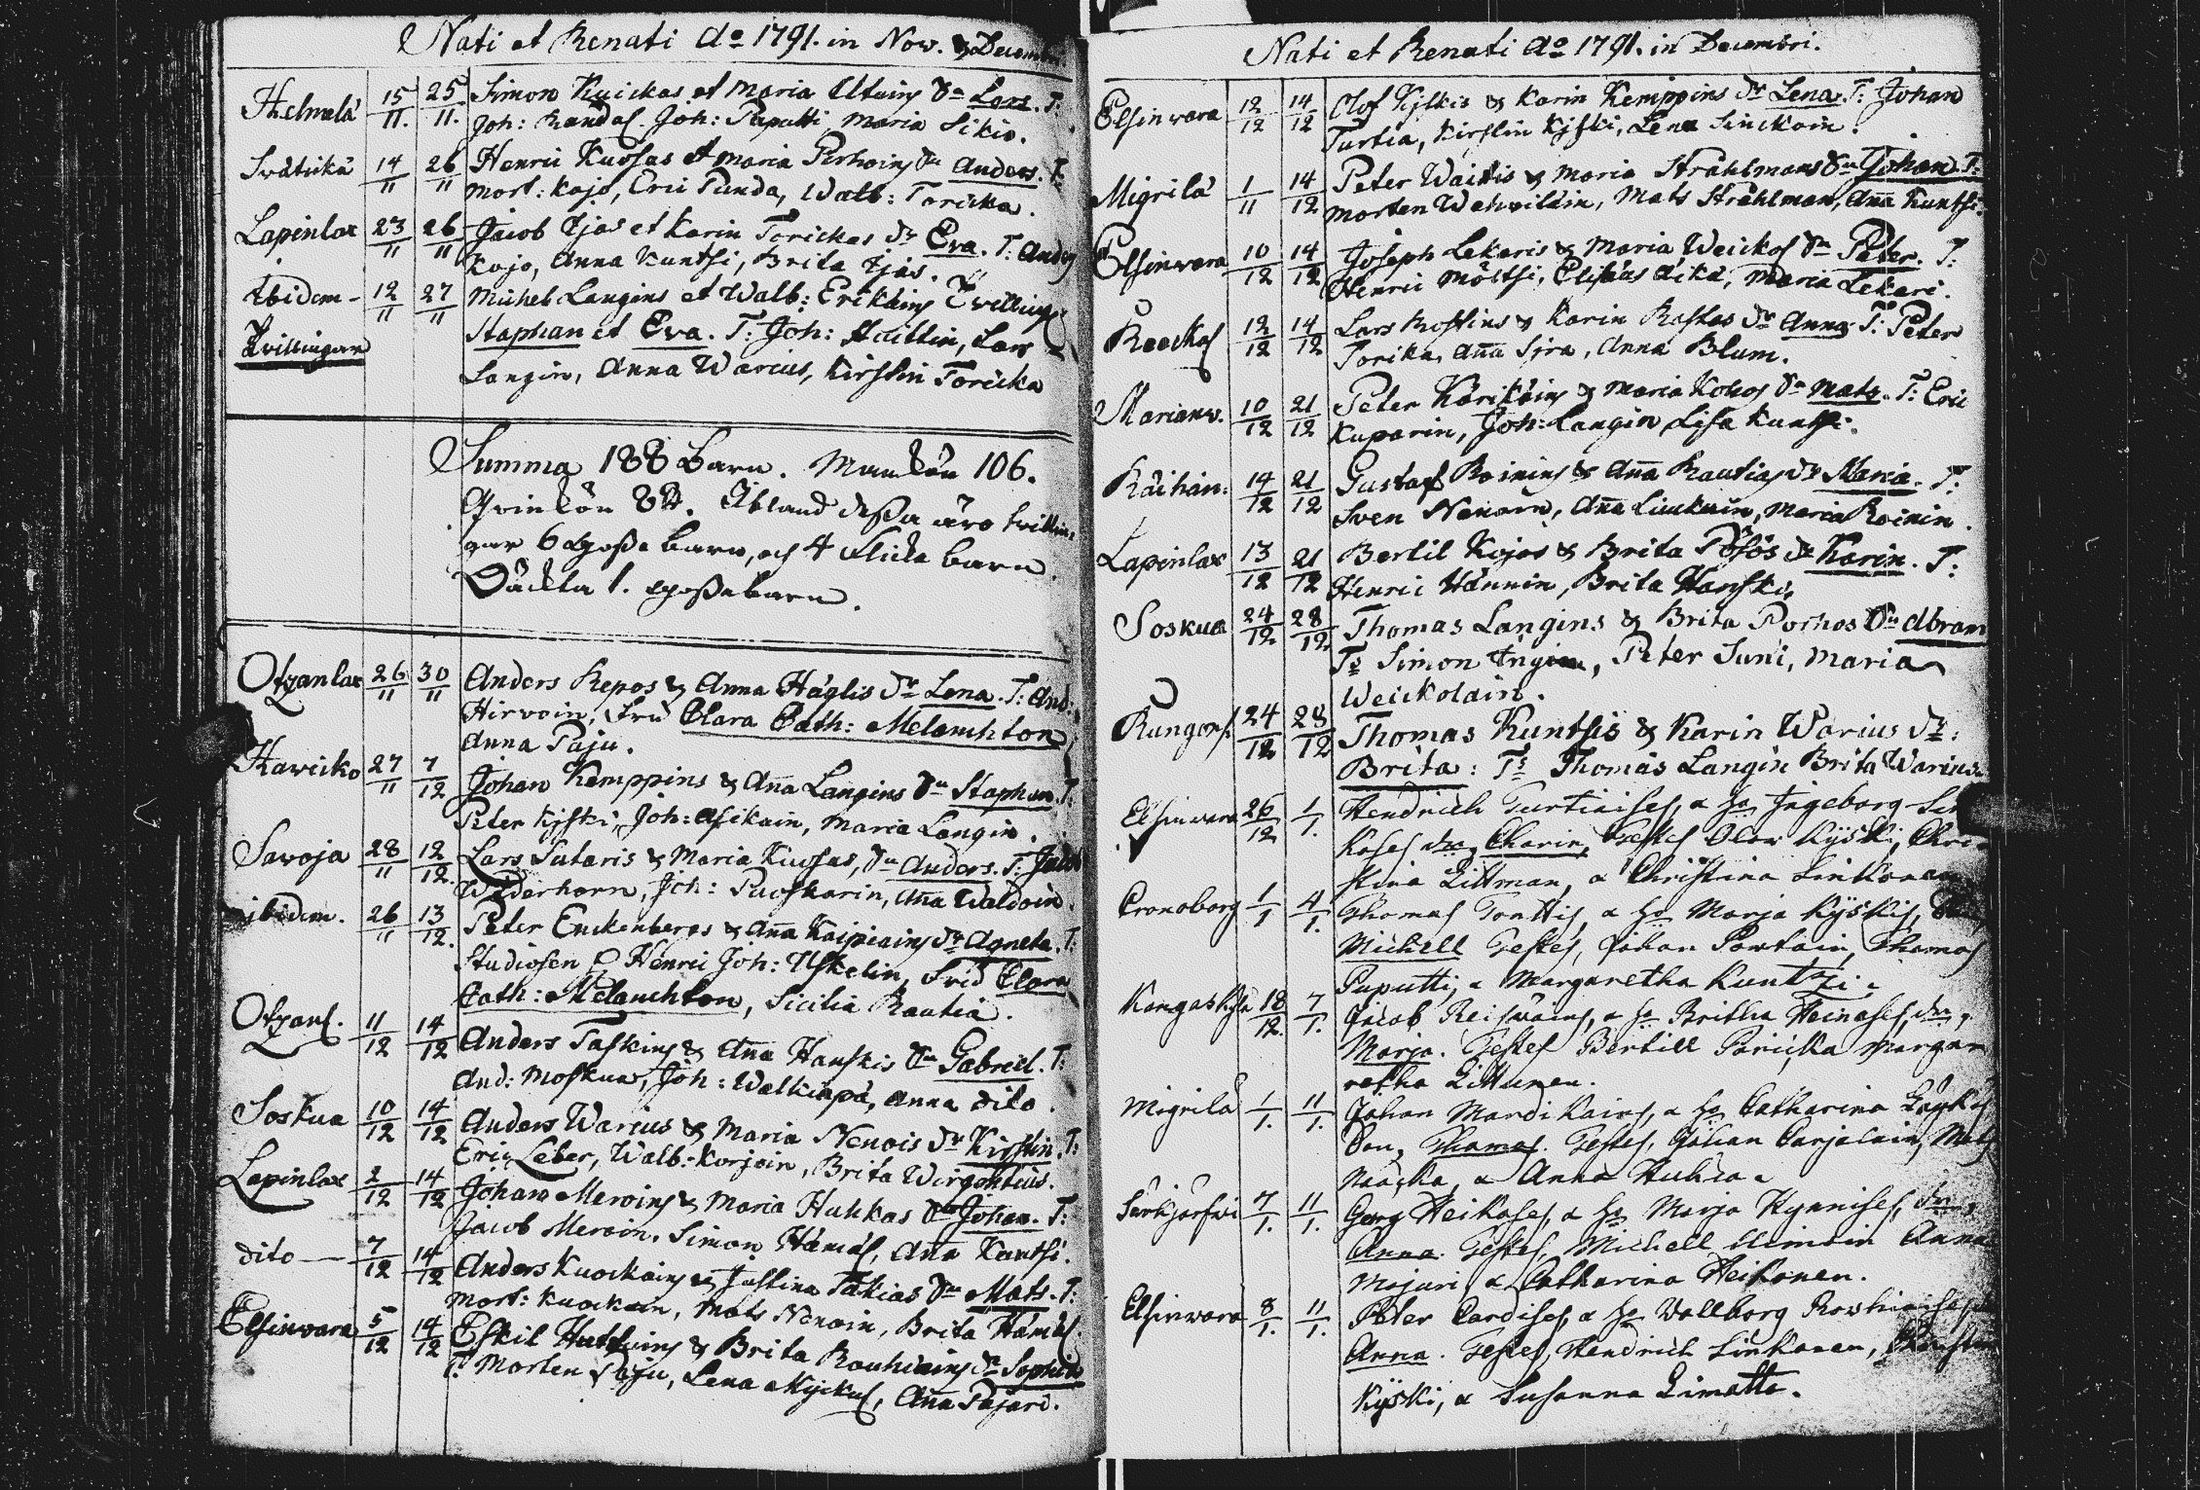 Nati et Renati Ao 1791. in Nov. & Decembr.
Helmelä 15/11. 25/11. Simon Kuickas et Maria Utuins Dr Lars. T:
Joh: Randal. Joh: Paputti Maria Sikio.
Svätickä 14/11 26/11 Henric Kuosas et Maria Perhoins Sn Anders. T:
Mort: Kojo, Eric Punda, Walb: Toricka.
Lapinlax 23/11 26/11 Jacob Äjas et Karin Torickas Dr Eva. T: Anders
Kojo, Anna Kuntsi, Brita Äjäs.
Ibidem - 12/11 27/11 Michel Langins et Walb: Erikäins Tvillingar
Tvillingar Staphan et Eva. T: Joh: Haittin, Lars
Langin, Anna Warius, Kirstin Toricka
Summa 188 Barn. Mankön 106.
Qvinkön 82. Ibland dessa äro tvillin-
gar 6 gosse barn, och 4 flicke barn.
Oäckta 1. gossebarn.
Otzanlax 26/11 30/11 Anders Repos & Anna Häglis Dr Lena. T: And:
Hirvoin, Fru Clara Cath: Melanchton,
Anna Paju.
Hawicko 27/11 7/12 Johan Kemppins & Ana Langins Sn Staphan. T:
Peter Kjiski, Joh: Asikain, Maria Langin.
Savoja 28/11 12/12. Lars Sutaris & Maria Kuosas, Sn Anders. T: Jacob
Wederhorn, Joh: Puoskarin, Ana Waldoin.
ibidem. 26/11 13/12. Peter Enckenbergs & Ana Kaipiains Dr Agneta. T:
Studiosen Henric Joh: Uskelin, Frid Clara
Cath: Melanchton, Sicilia Rautia.
Otzanl. 11/12 14/12 Anders Taskins & Ana Hanskis Sn Gabriel. T:
And: Moskua, Joh: Walkiapä, Anna dito.
Soskua 10/12 14/12 Anders Warius & Maria Nenois Dr Kirstin. T:
Eric Leber, Walb: Korjoin, Brita Wirgonius.
Lapinlax 2/12 14/12 Johan Meroins & Maria Huhkas Sn Johan. T:
Jacob Meroin, Simon Hämäl, Ana Kuntsi.
dito — 7/12 14/12 Anders Kuockains & Justina Takias Sn Mats. T:
Mort: Kuockain, Mats Nenoin, Brita Hämäl.
Elsinwara 5/12 14/12 Eskil Huttuins & Brita Rouhiains Dr Sophia
T: Morten Paju, Lena Myckyl, Ana Pajari.
Nati et Renati Ao 1791. in Decembri.
Elsinwara 12/12 14/12 Olof Kjskis & Karin Kemppins Dr Lena. T: Johan
Turtia, Kirstin Kjski, Lena Sinckoin.
Migrilä 1/11 14/12 Peter Waittis & Maria Strählmans Sn Johan. T:
Morten Wehviläin, Mats Strählman, Ana Kuntsi.
Elsinwara 10/12 14/12 Joseph Lekaris & Maria Weickol Sn Peter. T:
Henric Möltsi, Elisäus Äikä, Maria Lekari.
Roockol 12/12 14/12 Lars Rostins & Karin Rastas Dr Anna. T: Peter
Torika, Ana Sjra, Anna Blum.
Marianw. 10/12 21/12 Peter Kärikäins & Maria Kokos Sn Mats. T: Eric
Kuparin, Joh: Langin Lisa Kuntsi.
Räihän: 14/12 21/12 Gustaf Roinins & Ana Rautias Dr Maria. T:
Sven Nenoin, Ana Liuckuin, Maria Roinin.
Lapinlax 13/12 21/12 Bertil Kojos & Brita Pösös Dr Karin. T:
Henric Hännin, Brita Hanski.
Soskua 24/12 28/12 Thomas Langins & Brita Porhos Sn Abram
Ts Simon Ingin, Peter Suni, Maria
Weickolain.
Kungorl. 24/12 28/12 Thomas Kuntsis & Karin Warius Dr:
Brita: Ts Thomas Langin Brita Warius.
Elsinwara 26/12 1/1. Hendrich Turtiaises, a Ho Ingeborg Sin-
koses dr, Charin, Testes Olov Kÿski, Chri-
stina Littman, a Christina Sinkonen
Cronoborg 1/1 4/1. Thomas Tonttis, a Ho Marja Kÿskis, Son
Michell Testes, Johan Powtain, Thomas
Puputti, a Margaretha Kuntzi.
Kangaskylä 18/12. 7/1. Jacob Reiswäins, a Ho Britha Heinoses, dr,
Marja. Testes Bertill Paricka Marga-
retha Littunen.
Migrilä 1/1. 11/1. Johan Mardikains, a Ho Catharina
Son, Thomas. Testes, Johan Carjalain, Mats
Naacka, a Anna Huhca.
Särkjärfwi 7/1. 11/1. Georg Heikoses, a Ho Marja Hynnises, dr,
Anna. Testes, Michell Uimoin Anna
Majuri, a Catharina Heikonen.
Elsinwara 8/1. 11/1. Peter Cardises, a Ho Wallborg Rowhiaises
Anna. Testes, Hendrich Sinkonen,
Kÿski, a Susanna Limatta.